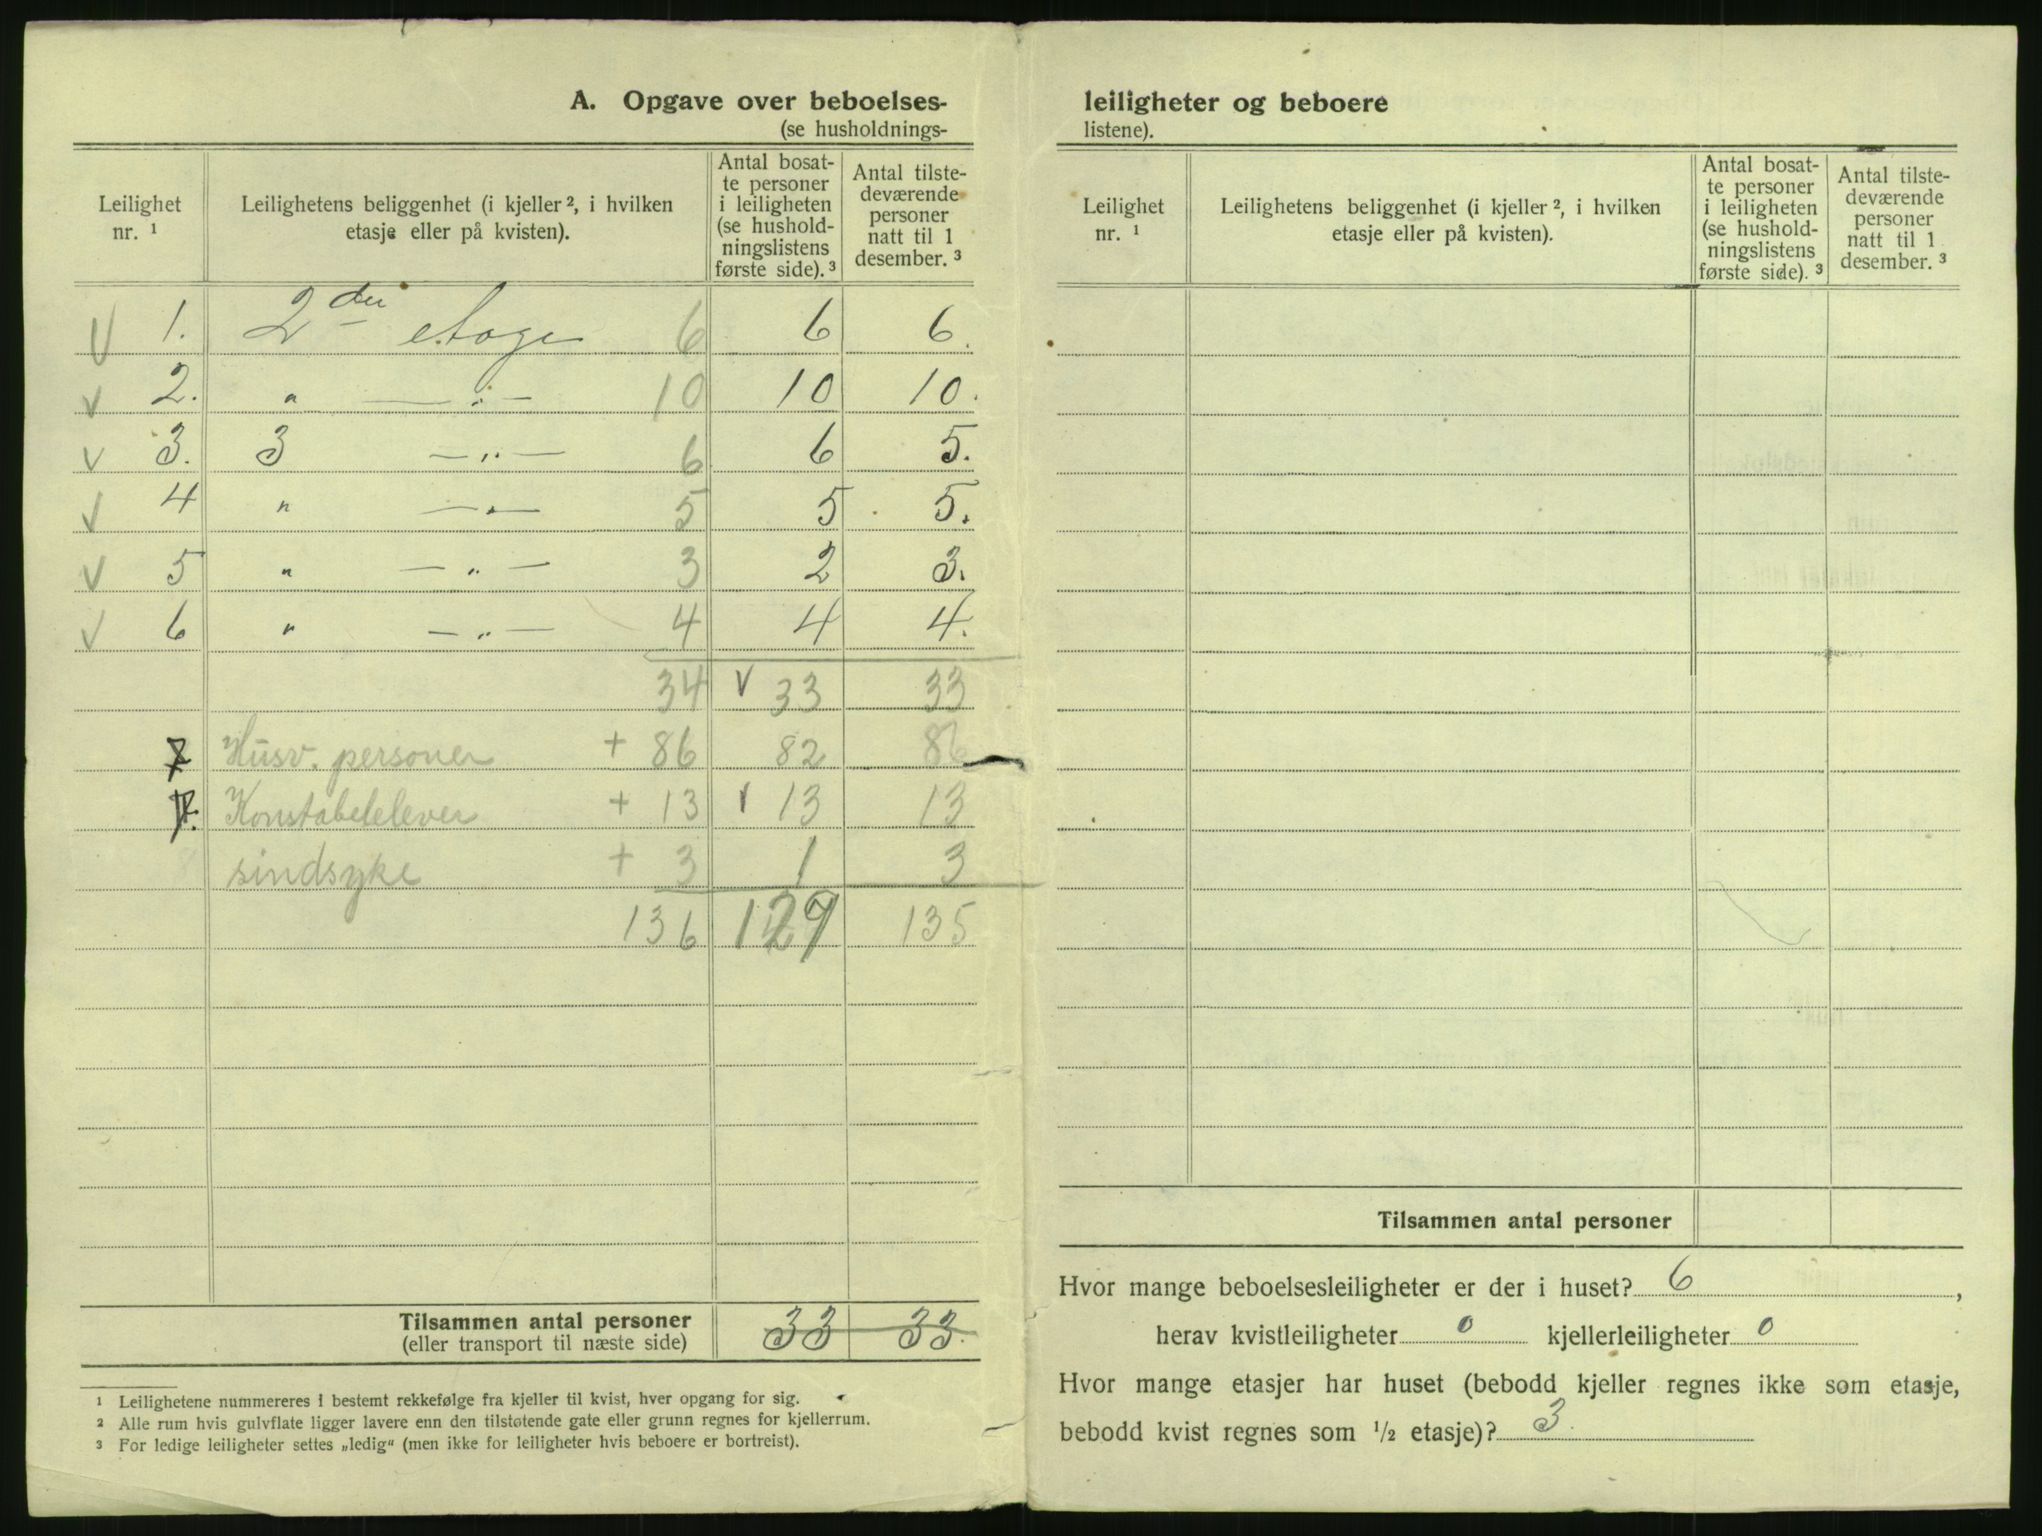 A. Opgave over beboelses-
(se husholdnings-
Leilighet nr. 1
Leilighetens beliggenhet (i kjeller 2, i hvilken etasje eller på kvisten).
Antal bosat-
te personer
i leiligheten
(se hushold-
ningslistens
første side). 3
Antal tilste-
deværende
personer
natt til 1
desember. 3
V 1. 2den etage 6 6 6.
V 2. " —:— 10 10 10.
V 3. 3 —"— 6 6 5.
V 4 " —"— 5 5 5.
V 5 " —"— 3 2 3.
V 6 " —"— 4 4 4.
34 V 33 33
7 Husv. personer + 86 82 86
Konstabelelever + 13 V 13 13
sindsyke + 3 1 3
136 129 135
Tilsammen antal personer 33 33.
(eller transport til næste side)
1 Leilighetene nummereres i bestemt rekkefølge fra kjeller til kvist, hver opgang for sig.
2 Alle rum hvis gulvflate ligger lavere enn den tilstøtende gate eller grunn regnes for kjellerrum.
3 For ledige leiligheter settes „ledig“ (men ikke for leiligheter hvis beboere er bortreist).
leiligheter og beboere
listene).
Leilighet nr. 1
Leilighetens beliggenhet (i kjeller 2, i hvilken etasje eller på kvisten).
Antal bosat-
te personer
i leiligheten
(se hushold-
ningslistens
første side). 3
Antal tilste-
deværende
personer
natt til 1
desember. 3
Tilsammen antal personer
Hvor mange beboelsesleiligheter er der i huset? 6,
herav kvistleiligheter 0 kjellerleiligheter 0
Hvor mange etasjer har huset (bebodd kjeller regnes ikke som etasje,
bebodd kvist regnes som 1/2 etasje)? 3.